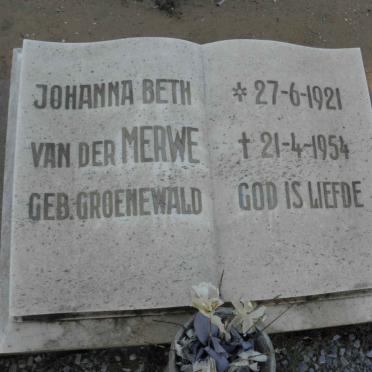 JOHANNA BETH
VAN DER MERWE
GEB. GROENEWALD
* 27-6-1921
† 21-4-1954
GOD IS LIEFDE